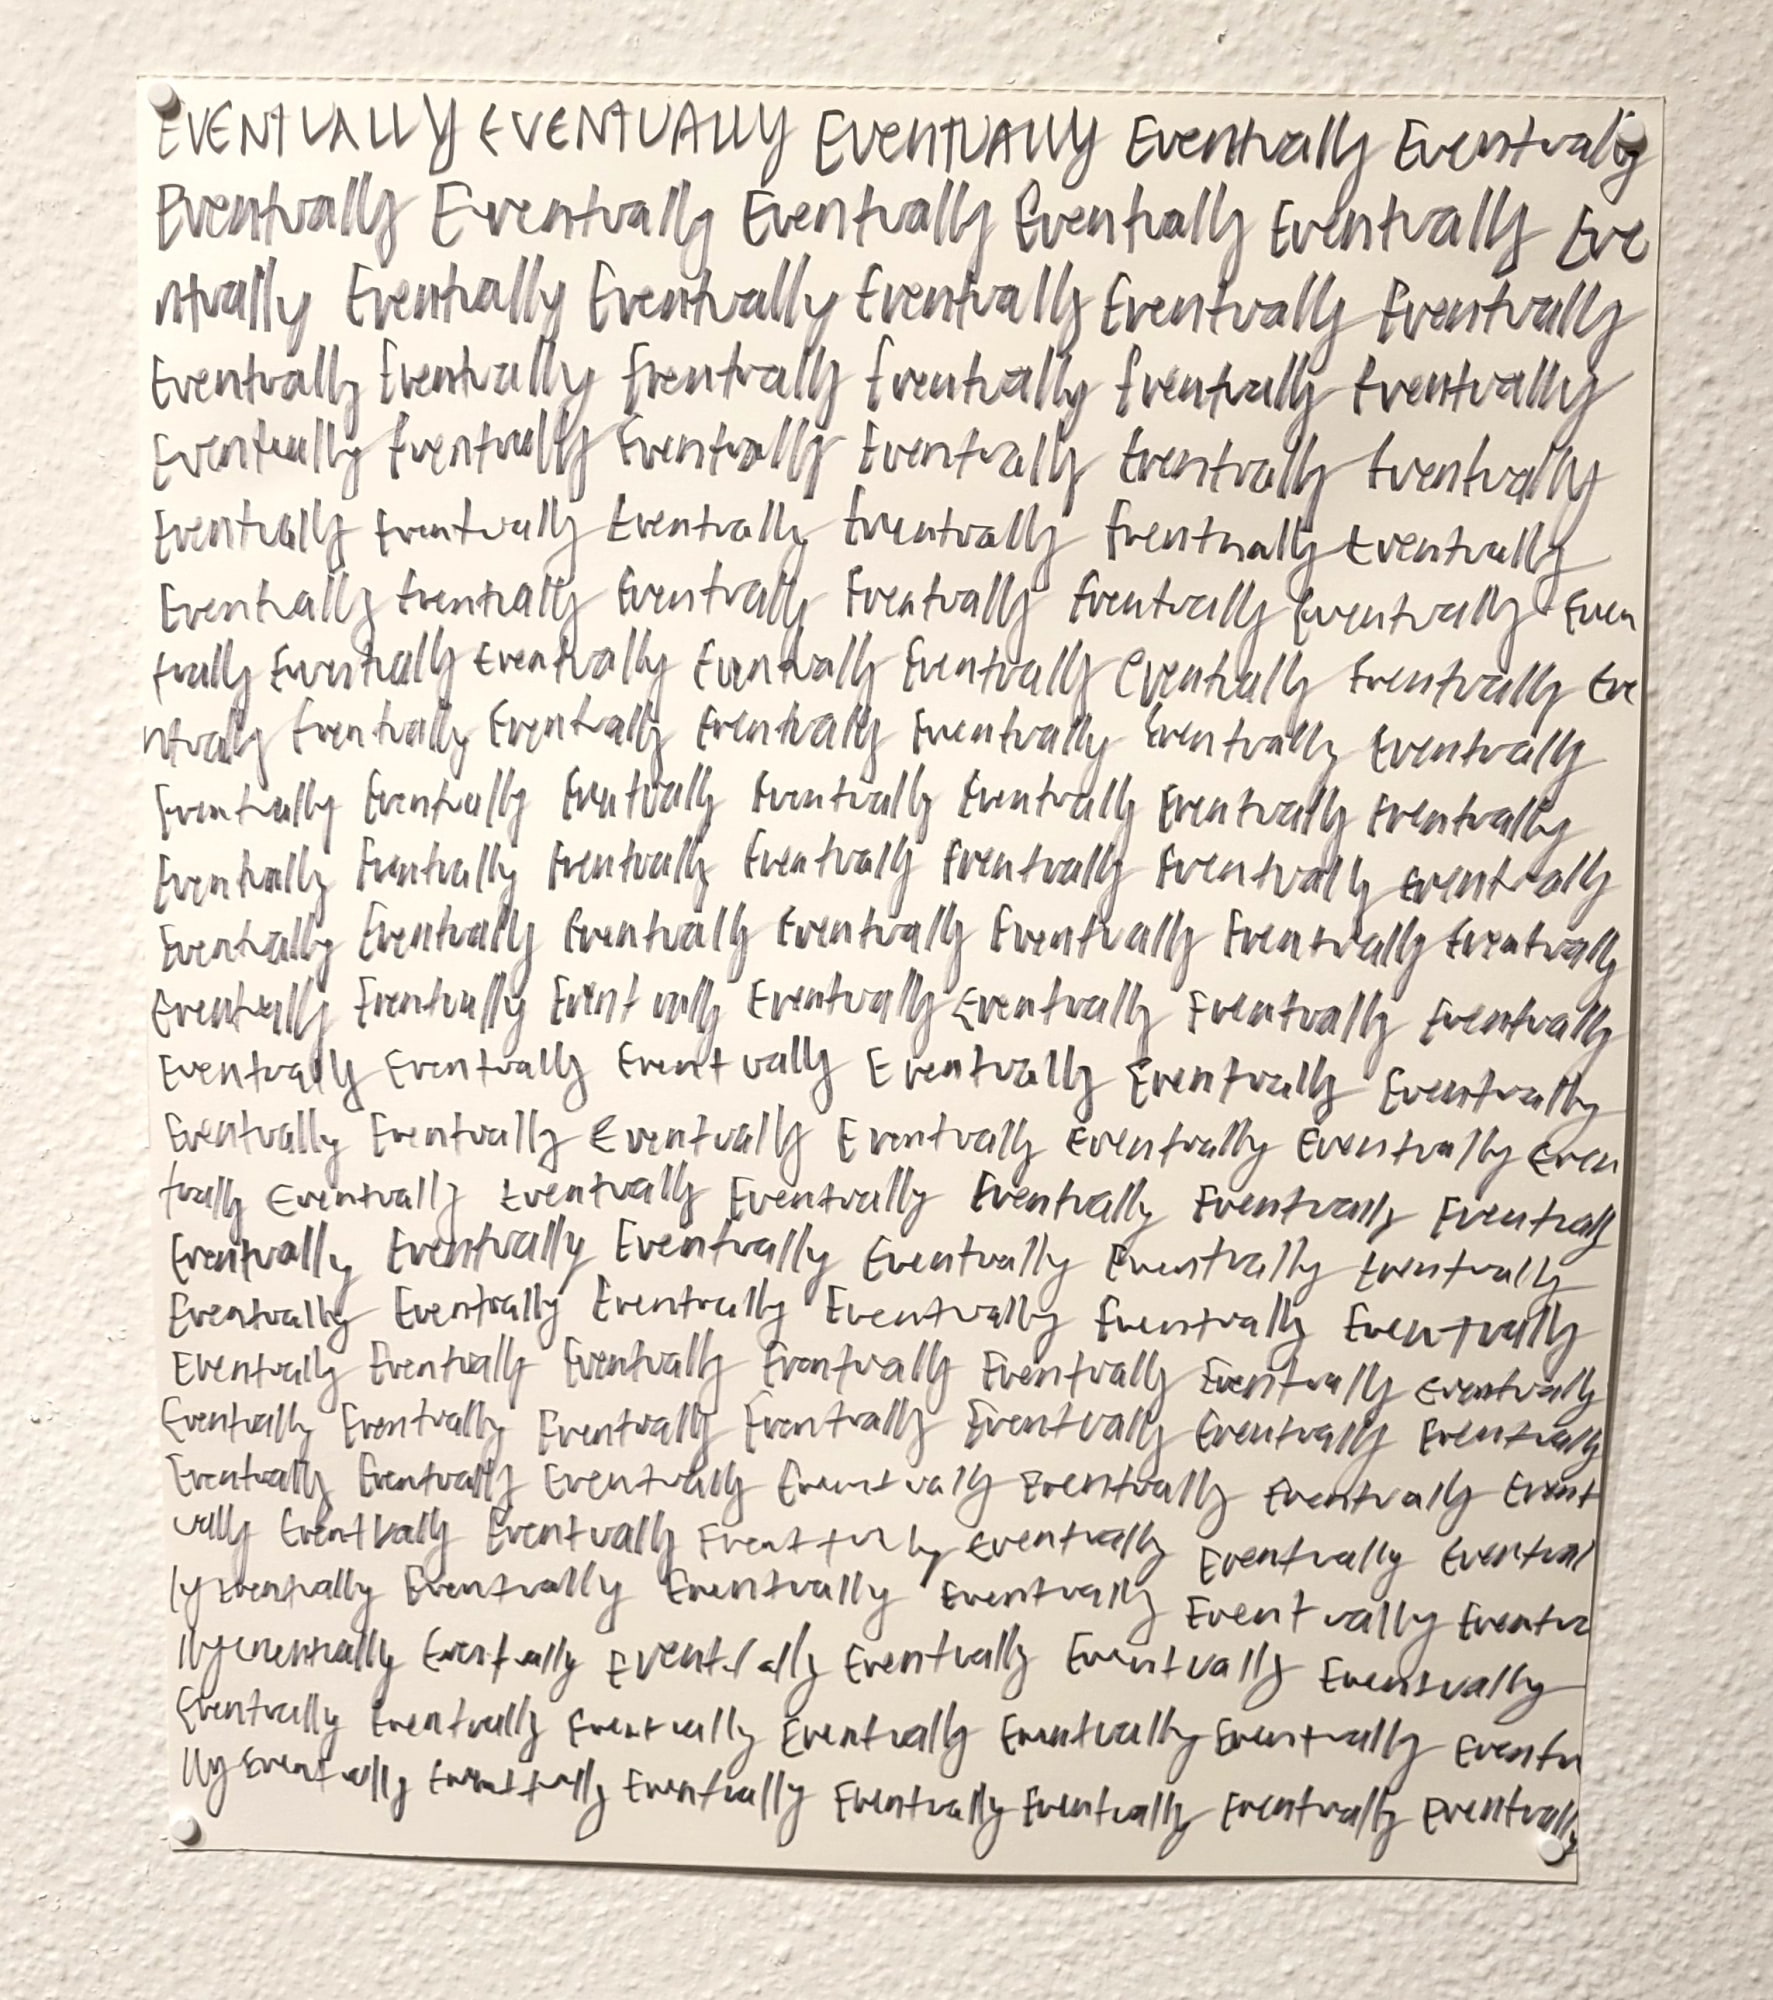 EVENTUALLY EVENTUALLY EVENTUALLY Eventually Eventually
Eventually Eventually Eventually Eventually Eventually Eve
ntually Eventually Eventually Eventually Eventually Eventually
Eventually Eventually Eventually Eventually Eventually Eventually
Eventually Eventually Eventually Eventually Eventually Eventually
Eventually Eventually Eventually Eventually Eventually Eventually
Eventually Eventually Eventually Eventually Eventually Eventually Even
tually Eventually Eventually Eventually Eventually Eventually Eventually Eve
ntually Eventually Eventually Eventually Eventually Eventually Eventually
Eventually Eventually Eventually Eventually Eventually Eventually Eventually
Eventually Eventually Eventually Eventually Eventually Eventually Eventually
Eventually Eventually Eventually Eventually Eventually Eventually Eventually
Eventually Eventually Eventually Eventually Eventually Eventually Eventually
Eventually Eventually Eventually Eventually Eventually Eventually
Eventually Eventually Eventually Eventually Eventually Eventually Even
tually Eventually Eventually Eventually Eventually Eventually Eventually
Eventually Eventually Eventually Eventually Eventually Eventually
Eventually Eventually Eventually Eventually Eventually Eventually
Eventually Eventually Eventually Eventually Eventually Eventually Eventually
Eventually Eventually Eventually Eventually Eventually Eventually Eventually
Eventually Eventually Eventually Eventually Eventually Eventually Event
ually Eventually Eventually Eventually Eventually Eventually Eventual
ly Eventually Eventually Eventually Eventually Eventually Eventua
lly Eventually Eventually Eventually Eventually Eventually Eventually
Eventually Eventually Eventually Eventually Eventually Eventually Eventu
lly Eventually Eventually Eventually Eventually Eventually Eventually Eventually